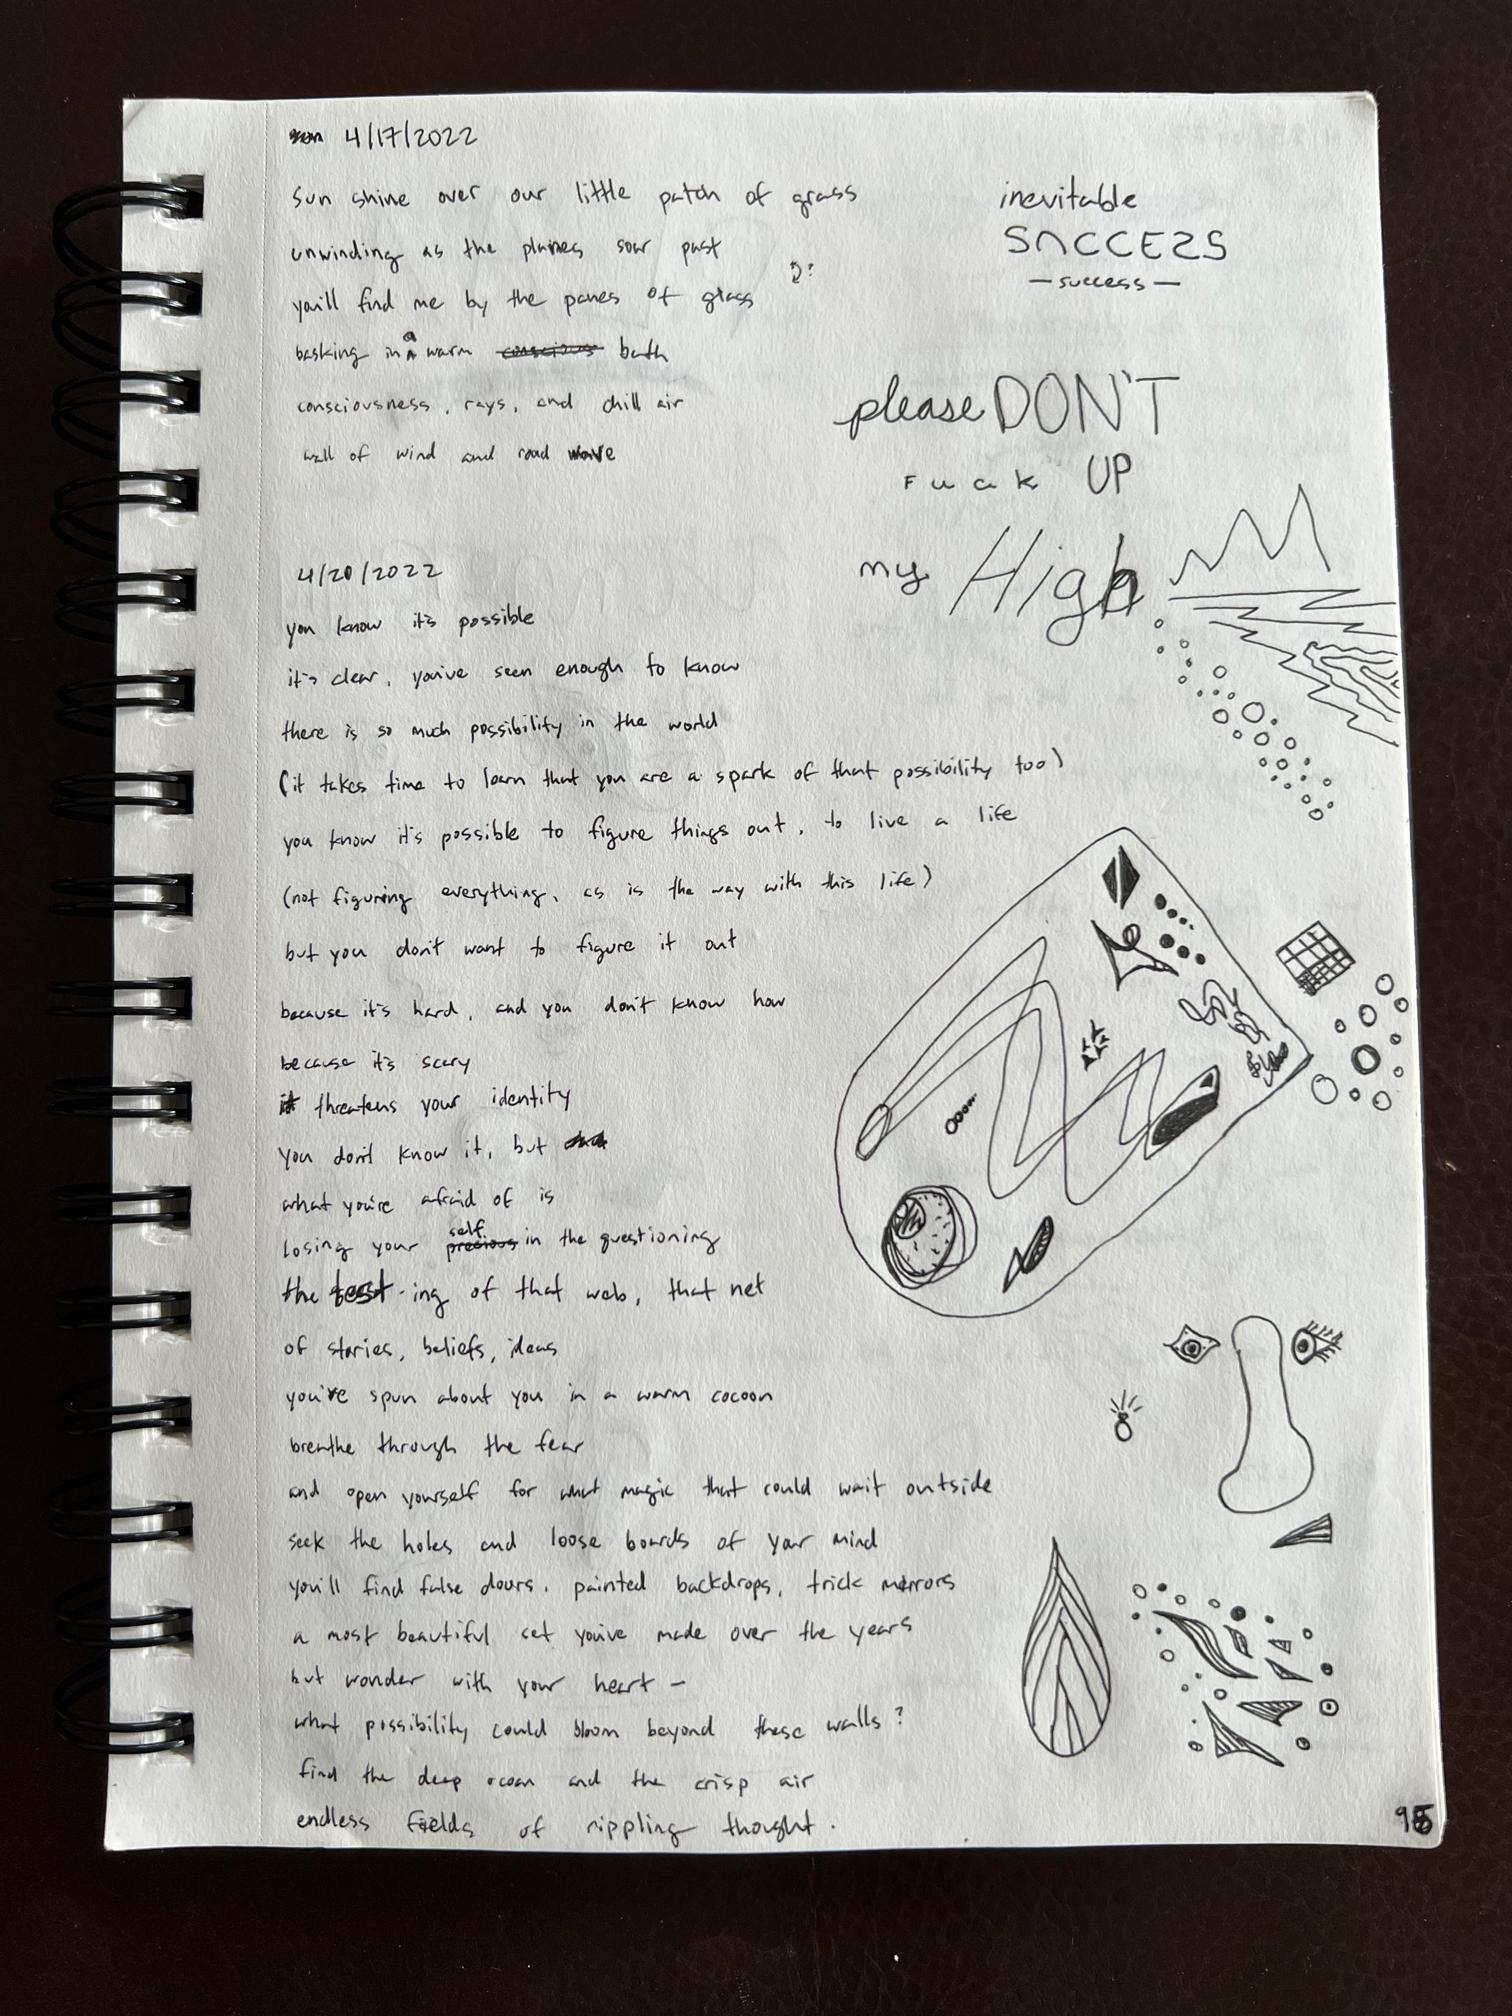 4/17/2022
sun shine over our little patch of grass
unwinding as the planes soar past
you'll find me by the panes of glass
basking in a warm conscious bath
consciousness, rays, and chill air
wall of wind and road wave
4/20/2022
you know it's possible
it's clear, you've seen enough to know
there is so much possibility in the world
(it takes time to learn that you are a spark of that possibility too)
you know it's possible to figure things out, to live a life
(not figuring everything, as is the way with this life)
but you don't want to figure it out
because it's hard, and you don't know how
because it's scary
it threatens your identity
you don't know it, but
what you're afraid of is
losing your precious self in the questioning
the test-ing of that web, that net
of stories, beliefs, ideas
you've spun about you in a warm cocoon
breathe through the fear
and open yourself for what magic that could wait outside
seek the holes and loose boards of your mind
you'll find false doors, painted backdrops, trick mirrors
a most beautiful set you've made over the years
but wonder with your heart –
what possibility could bloom beyond these walls?
find the deep ocean and the crisp air
endless fields of rippling thought.
inevitable
SUCCESS
— success —
please DON'T
Fuck UP
my High